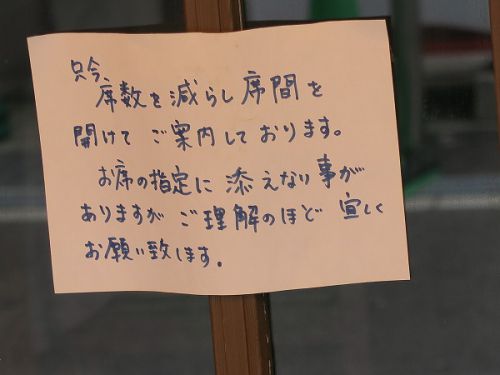 只今、
席数を減らし席間を
開けてご案内しております。
お席の指定に添えない事が
ありますがご理解のほど宜しく
お願い致します。